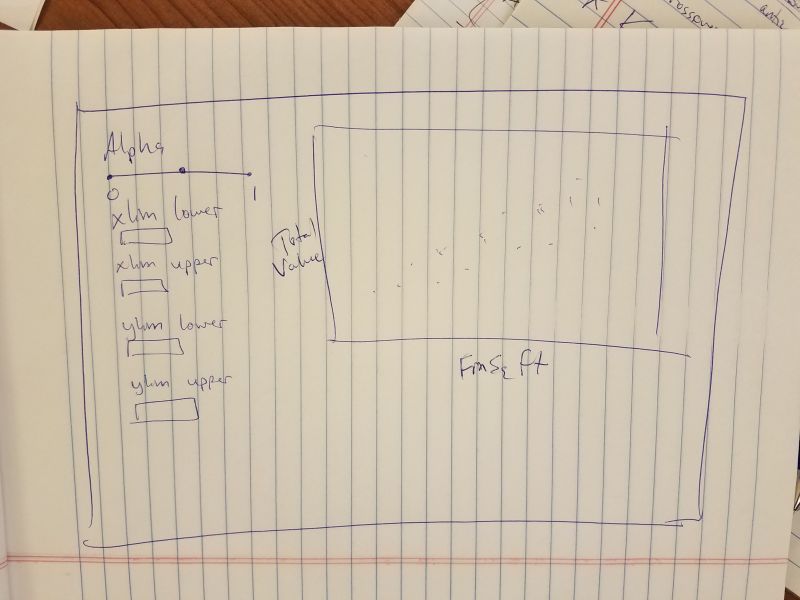 Alpha
0 1
xlim lower
xlim upper
ylim lower
ylim upper
Total
Value
FinSqft